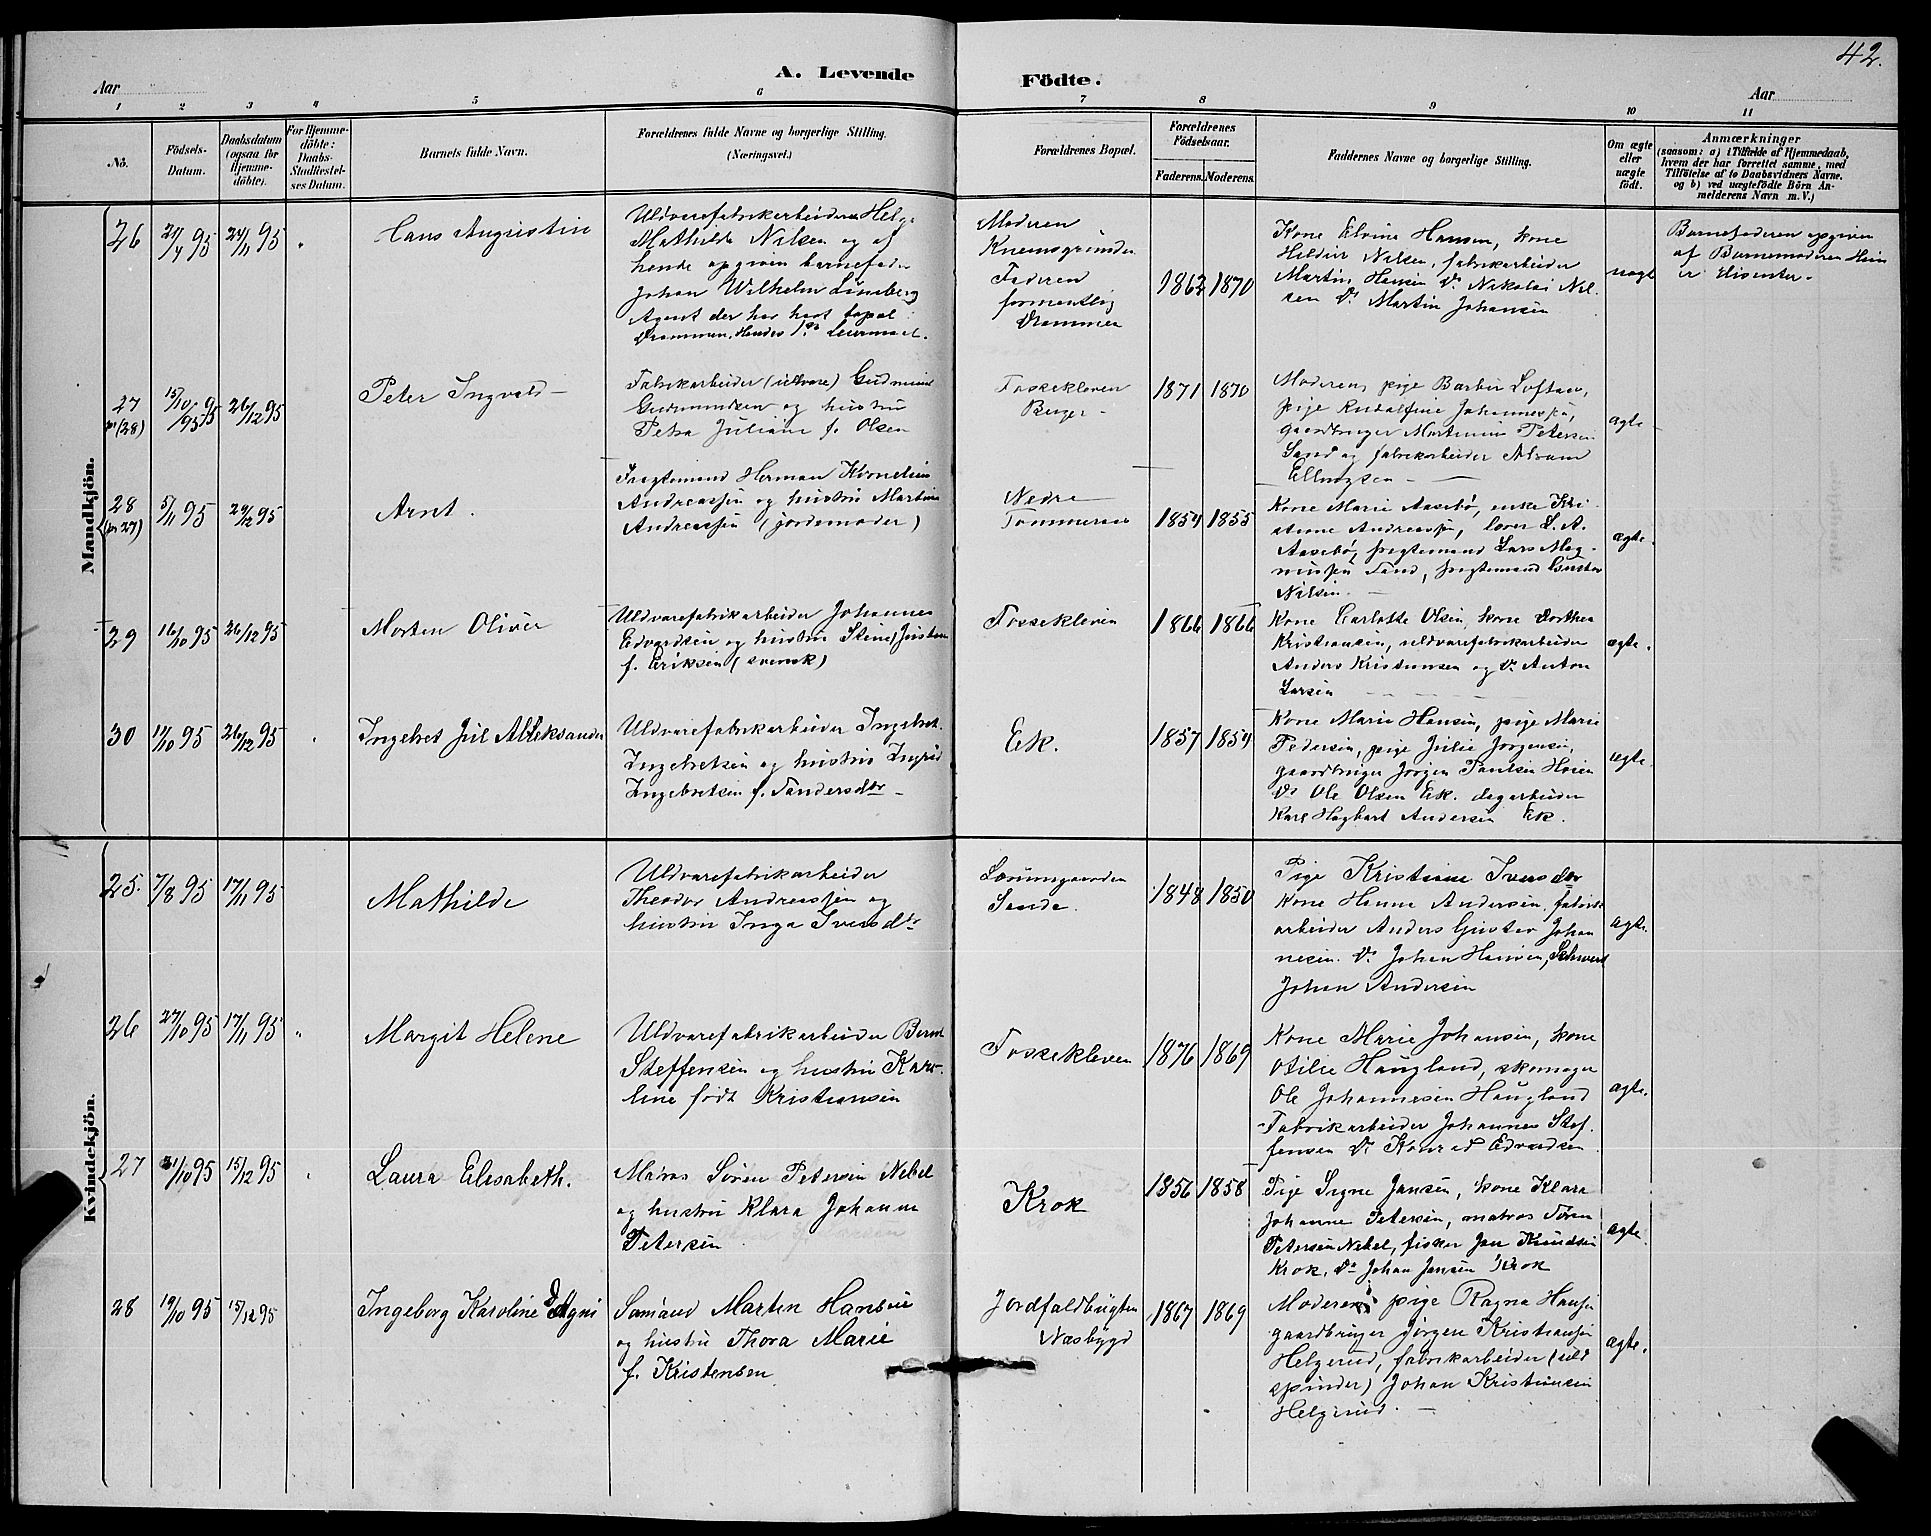 42.
A. Levende Födte.
Aar
Aar
1 2 3 4 5 6 7 8 9 10 11
No.
Födsels-
Datum.
Daabsdatum
(ogsaa for
Hjemme-
döbte).
For Hjemme-
döbte:
Daabs-
Stadfæstel-
ses Datum.
Barnets fulde Navn.
Forældrenes fulde Navne og borgerlige Stilling.
(Næringsvei.)
Forældrenes Bopæl.
Forældrenes
Födselsaar.
Faderens. Moderens.
Faddernes Navne og borgerlige Stilling.
Om ægte
eller
uægte
födt.
Anmærkninger
(saasom: a) i Tilfælde af Hjemmedaab,
hvem der har forrettet samme, med
Tilföielse af to Daabsvidners Navne,
og b) ved uægtefödte Börn An-
melderens Navn m. V.)
Mandkjön.
26
95
24/11 95
Hans Augustin
Uldvarefabrikarbeider
Mathilde Nilsen og af
hende opgiven barnefader
Johan Wilhelm Lineberg
Agent der har havt bopæl i
Drammen. Hendes 1ste Leiermaal.
Moderen
Knemsgrinden
Faderen
formentlig
Drammen
1870
Kone Elvine Hansen, kone
Hildur Nilsen, fabrikarbeider
Martin Hansen Do Nikolai Nil-
sen Do Martin Johansen
uægte
Barnefaderen opgiven
af Barnemoderen Hun
er dissenter.
27
(28)
15/10 95
26/12 95
Peter Ingvald
Fabrikarbeider (uldvare) Gudmund
Gudmundsen og hustru
Petra Juliane f. Olsen
Fossekleven
Berger
1871 1870
Moderen, pige Barbra Loftsen,
pige Rudolfine Johannessen,
gaardbruger Martinius Petersen
Sand og fabrikarbeider Abram
Ellingsen
ægte
28
(27)
5/11 95
29/12 95
Arnt.
Fragtemand Herman Kornelius
Andreassen og hustru Martine
Andreassen (jordemoder)
Nedre
Tommeraas
1854 1855
Kone Marie Aasebø, enke Kri-
stine Andreassen, lærer L. A.
Aasebø, fragtemand Lars Mag-
nussen Sand, fragtemand Gustav
Nilsen.
ægte.
29
16/10 95
26/12 95
Morten Oliver
Uldvarefabrikarbeider Johannes
Edvardsen og hustru Stine
f. Eriksen (svensk)
Fossekleven
1866 1866
Kone Carlotte Olsen, kone Dorthea
Kristiansen, uldvarefabrikarbeider
Anders Kristiansen og Do Anton
Larsen
ægte.
30
11/10 95
26/12 95
Ingebret Jul Alleksander
Uldvarefabrikarbeider Ingebret
Ingebretsen og hustru Ingrid
Ingebretsen f. Sandersdtr
Ek.
1857 1854
Kone Marie Hansen, pige Marie
Pedersen, pige Julie Jorgensen,
gaardbruger Jørgen Paulsen Hoien
Do Ole Olsen Ek. dagarbeider
Karl Hagbart Andersen Ek.
ægte.
Kvindekjön.
25.
7/8 95
17/11 95
Mathilde
Uldvarefabrikarbeider
Theodor Andreassen og
hustru Inga Iversdtr
Sande.
1848 1850
Pige Kristiane Iversdtr
Kone Hanne Andersen, fabrik-
arbeider Anders Gustav Johan
nesen. Do Johan Hansen,
Johan Andersen
ægte.
26
27/10 95
17/11 95
Margit Helene
Uldvarefabrikarbeider Bernt
Steffensen og hustru Karo-
line født Kristiansen
Fossekleven
1876 1869
Kone Marie Johansen, kone
Otilie Haugland, skomager
Ole Johannesen Haugland
Fabrikarbeider Johannes Stef-
fensen Do Konrad Edvardsen
ægte.
27
21/10 95
15/12 95
Laura Elisabeth.
Matros Søren Petersen Nebel
og hustru Klara Johanne
Petersen
Krok
1856 1858
Pige Signe Jansen, kone Klara
Johanne Petersen, matros Søren
Petersen Nebel, fisker Jan Knudsen
Krok, Do Johan Jansen Krok
ægte.
28
19/10 95
15/12 95
Ingeborg Karoline Dagni
Sømand Martin Hansen
og hustru Thora Marie
f. Kristensen
Jordfaldbugten
Næsbygd
1867 1869
Moderen, pige Ragna Hansen
gaardbruger Jörgen Kristiansen
Helgerud, fabrikarbeider (uld
spinder) Johan Kristiansen
Helgerud.
ægte.